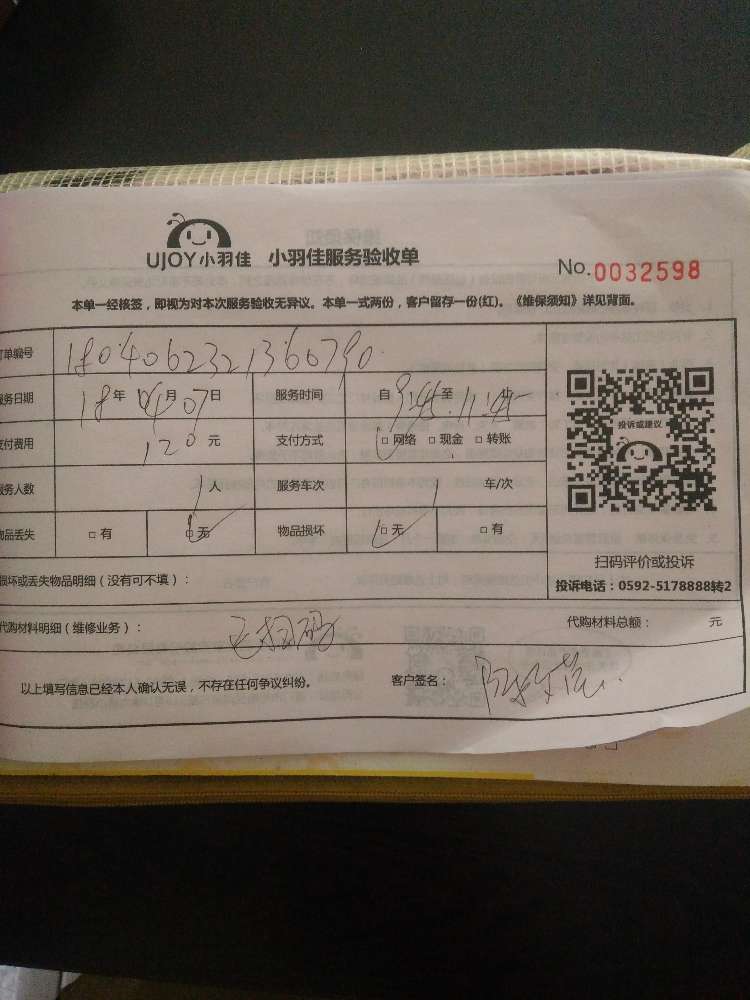 UJOY小羽佳 小羽佳服务验收单
No.0032598
本单一经核签，即视为对本次服务验收无异议。本单一式两份，客户留存一份(红)。《维保须知》详见背面。
订单编号 1804062321360790
服务日期 18年04月07日 服务时间 自9:45至11:45止
支付费用 120元 支付方式 □网络 □现金 □转账
服务人数 1人 服务车次 1车/次
物品丢失 □有 □无 物品损坏 □无 □有
投诉或建议
扫码评价或投诉
投诉电话：0592-5178888转2
损坏或丢失物品明细（没有可不填）：
代购材料明细（维修业务）： 已扫码 代购材料总额： 元
以上填写信息已经本人确认无误，不存在任何争议纠纷。 客户签名：